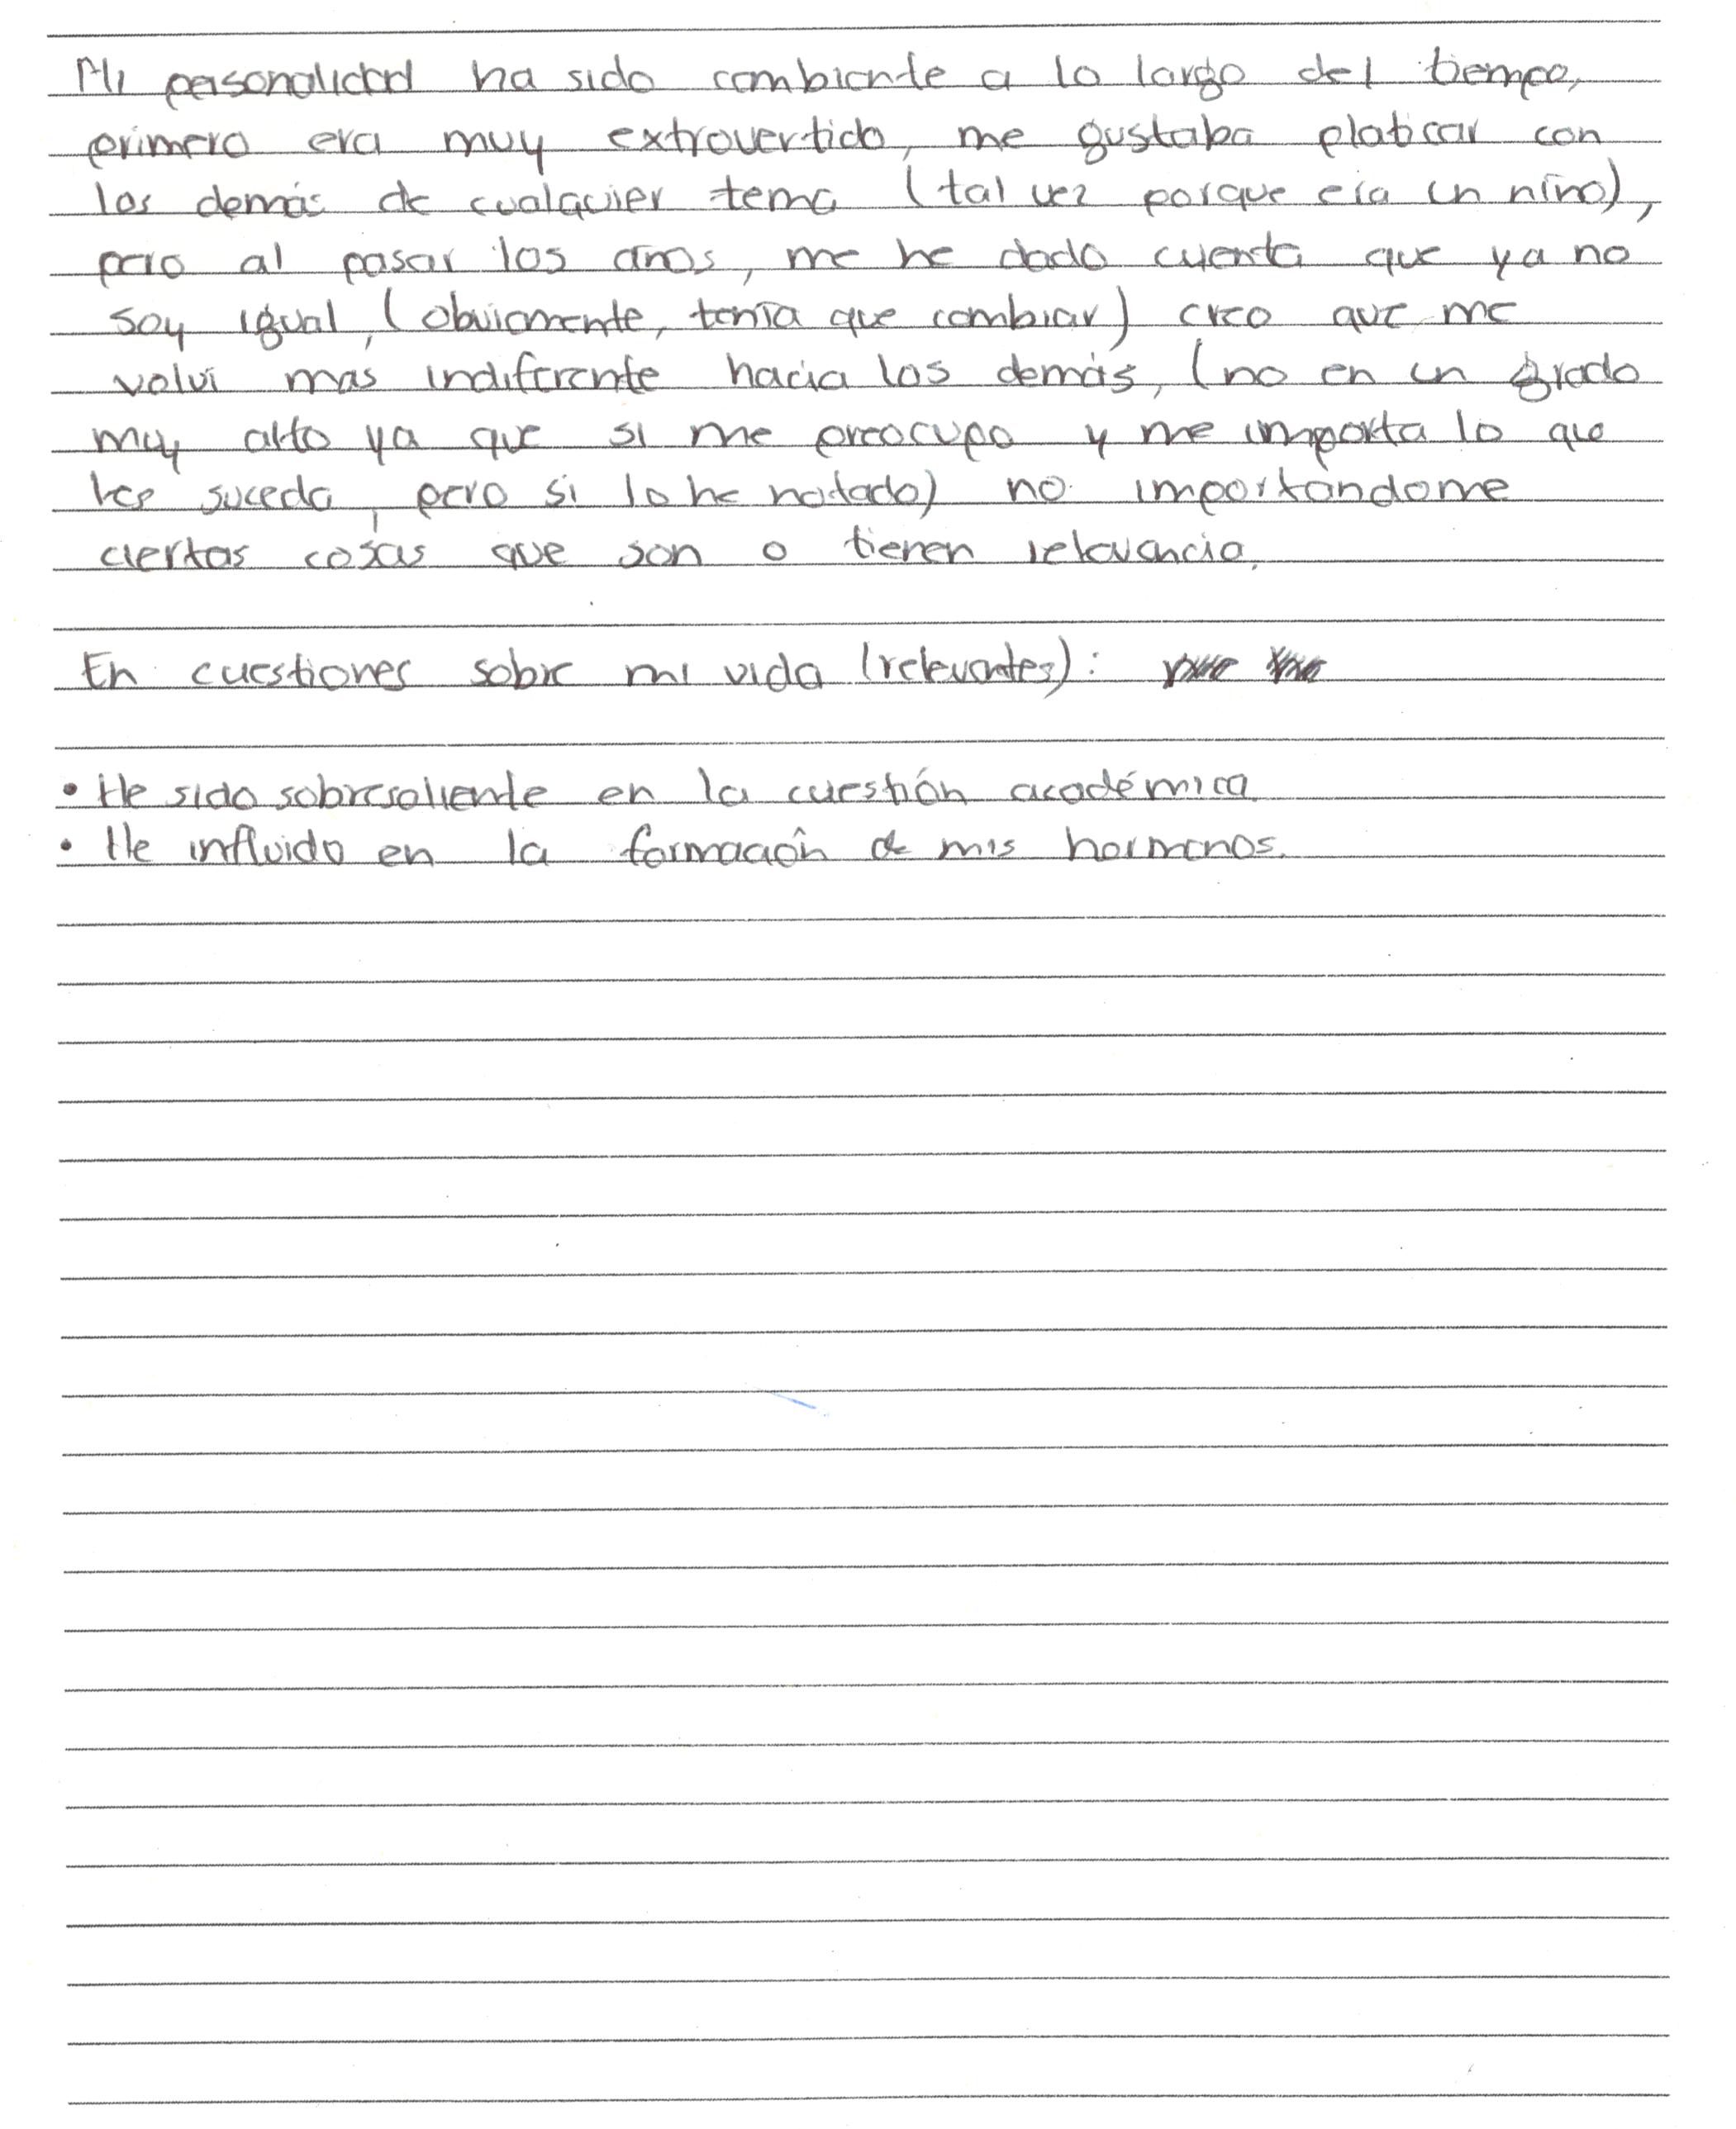 Mi personalidad ha sido cambiante a lo largo del tiempo,
primero era muy extrovertido, me gustaba platicar con
los demás de cualquier tema (tal vez porque era un niño),
pero al pasar los años, me he dado cuenta que ya no
soy igual, (obviamente, tenía que cambiar) creo que me
volví mas indiferente hacia los demás, (no en un grado
muy alto ya que si me preocupo y me importa lo que
les suceda, pero si lo he notado) no importandome
ciertas cosas que son o tienen relevancia.
En cuestiones sobre mi vida (relevantes):
• He sido sobresaliente en la cuestión académica
• He influido en la formación de mis hermanos.